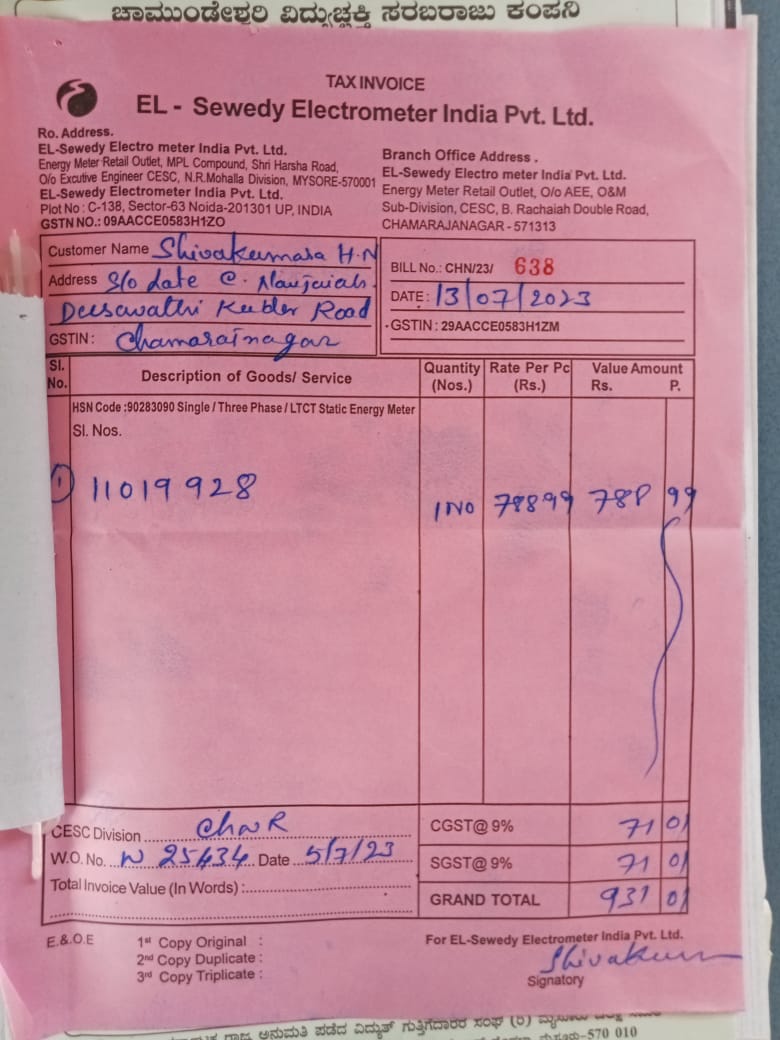 ಚಾಮುಂಡೇಶ್ವರಿ ವಿದ್ಯುಚ್ಛಕ್ತಿ ಸರಬರಾಜು ಕಂಪನಿ
TAX INVOICE
EL - Sewedy Electrometer India Pvt. Ltd.
Ro. Address.
EL-Sewedy Electro meter India Pvt. Ltd.
Energy Meter Retail Outlet, MPL Compound, Shri Harsha Road,
O/o Excutive Engineer CESC, N.R.Mohalla Division, MYSORE-570001
EL-Sewedy Electrometer India Pvt. Ltd.
Plot No : C-138, Sector-63 Noida-201301 UP, INDIA
GSTN NO.: 09AACCE0583H1ZO
Branch Office Address .
EL-Sewedy Electro meter India Pvt. Ltd.
Energy Meter Retail Outlet, O/o AEE, O&M
Sub-Division, CESC, B. Rachaiah Double Road,
CHAMARAJANAGAR - 571313
Customer Name Shivakumara H.N
Address S/o Late C. Nanjaiah.
Road
GSTIN : Chamarajnagar
BILL No.: CHN/23/ 638
DATE : 13/07/2023
GSTIN : 29AACCE0583H1ZM
Sl. No. Description of Goods/ Service Quantity (Nos.) Rate Per Pc (Rs.) Value Amount Rs. P.
HSN Code :90283090 Single / Three Phase / LTCT Static Energy Meter
Sl. Nos.
1 11019928 1 NO 78899 788 99
CESC Division ChNR CGST@ 9% 71 01
W.O. No. N 25434 Date 5/7/23 SGST@ 9% 71 01
Total Invoice Value (In Words) : GRAND TOTAL 931 01
E.& O.E
1st Copy Original :
2nd Copy Duplicate :
3rd Copy Triplicate :
For EL-Sewedy Electrometer India Pvt. Ltd.
Shivakum
Signatory
ರಾಜ್ಯ ಅನುಮತಿ ಪಡೆದ ವಿದ್ಯುತ್ ಗುತ್ತಿಗೆದಾರರ ಸಂಘ (ರಿ)
570 010